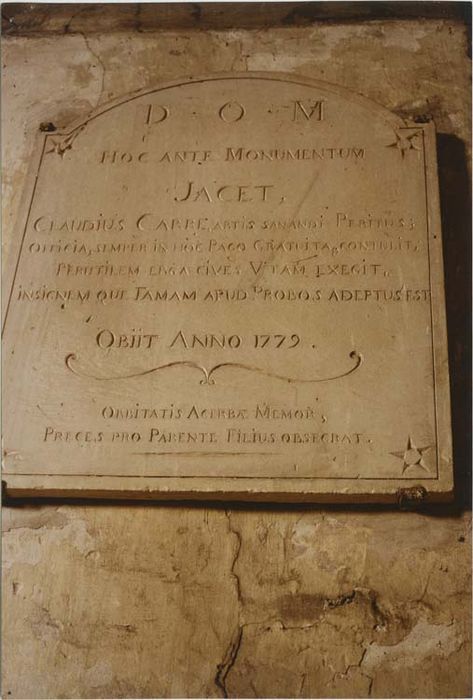 D · O · M
HOC ANTE MONUMENTUM
JACET,
CLAUDIUS CARRE, ARTIS SANANDI PERITUS;
OFFICIA, SEMPER IN HOC PAGO GRATUITA, CONTULIT,
PERUTILEM ERGA CIVES VITAM EXEGIT,
INSIGNEM QUE FAMAM APUD PROBOS ADEPTUS EST
OBIIT ANNO 1779.
ORBITATIS ACERBÆ MEMOR,
PRECES PRO PARENTE FILIUS OBSECRAT.